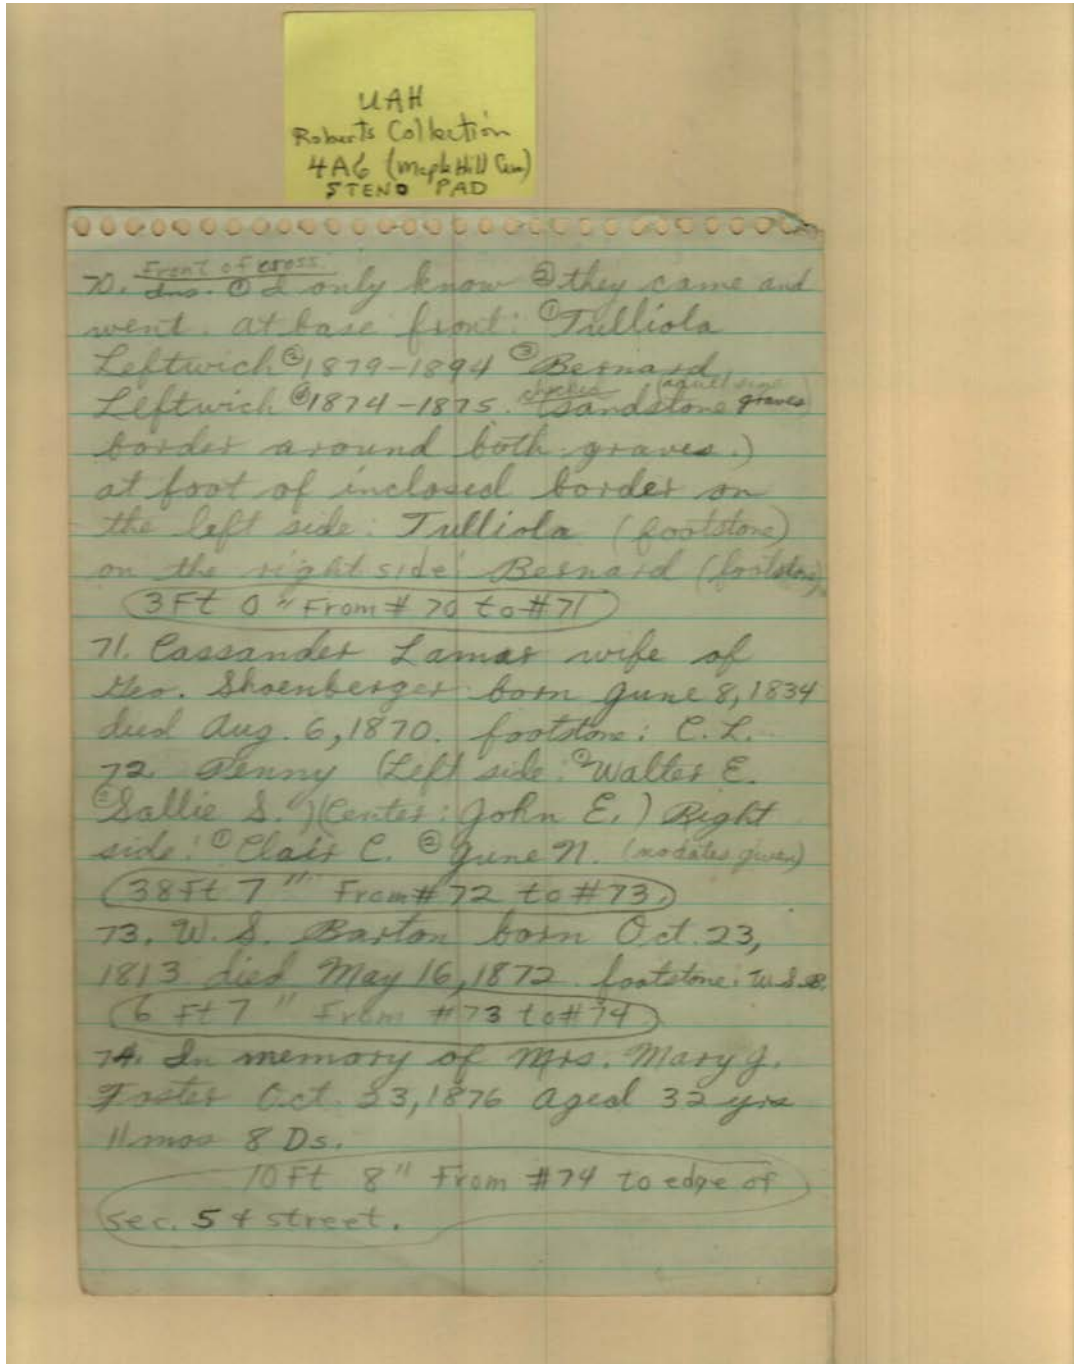 UAH
Roberts Collection
4A6 (Maple Hill Cem)
STENO PAD
Front of cross.
70. Ins. ① I only know ② they came and
went. at base front: ① Tulliola
Leftwich ② 1879-1894 ③ Bernard
Leftwich ④ 1874-1875. (sandstone graves
border around both graves.)
at foot of inclosed border on
the left side: Tulliola (footstone)
on the right side: Bernard (footstone)
3Ft 0" From # 70 to #71
71. Cassander Lamar wife of
Geo. Shoenberger born June 8, 1834
died Aug. 6, 1870. footstone: C. L.
72. Penny (Left side: ① Walter E.
② Sallie S.) (Center: John E.) Right
side: ① Clair C. ② June N. (no dates given)
38Ft 7" From # 72 to #73
73. W. S. Barton born Oct. 23,
1813 died May 16, 1872. footstone: W.S.B.
6 Ft 7" From #73 to #74
74. In memory of Mrs. Mary J.
Foster Oct. 23, 1876 Aged 32 yrs
11 mos 8 Ds.
10Ft 8" From #74 to edge of
sec. 5 & street.